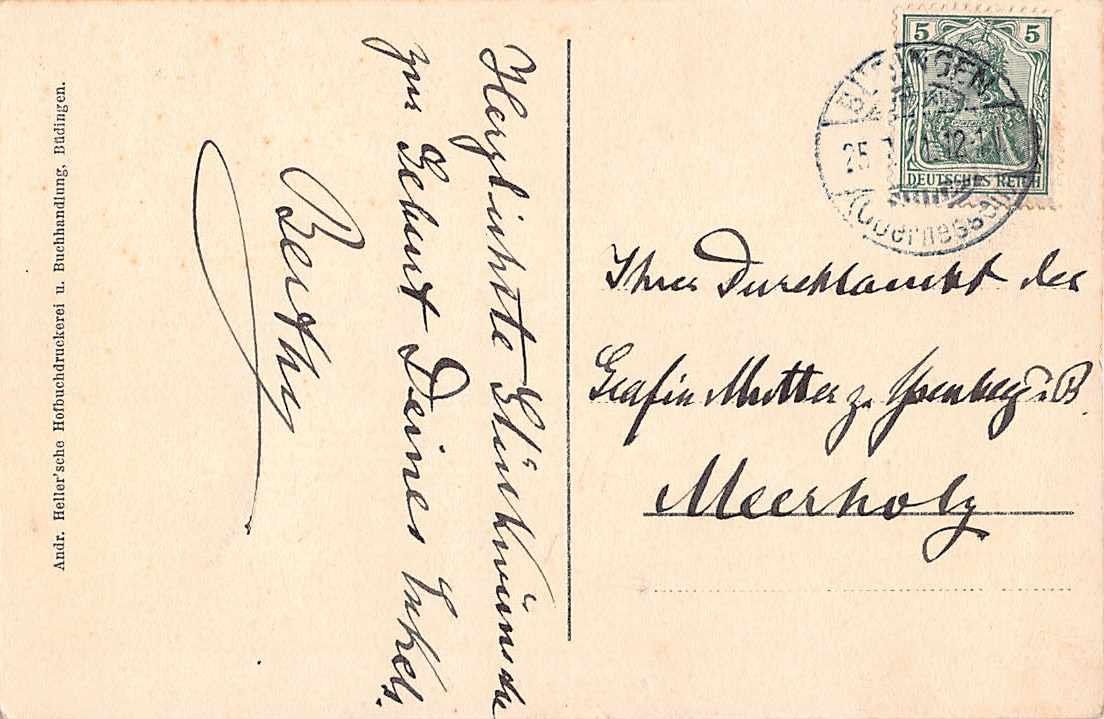 Andr. Heller'sche Hofbuchdruckerei u. Buchhandlung, Büdingen.
Herzlichste Glückwünsche
zur Geburt Deines Enkels.
Berthy
5 5
DEUTSCHES REICH
BÜDINGEN
25 12-1N
(Oberhessen)
Ihrer Durchlaucht der
Gräfin Mutter z. Ysenburg u B.
Meerholz